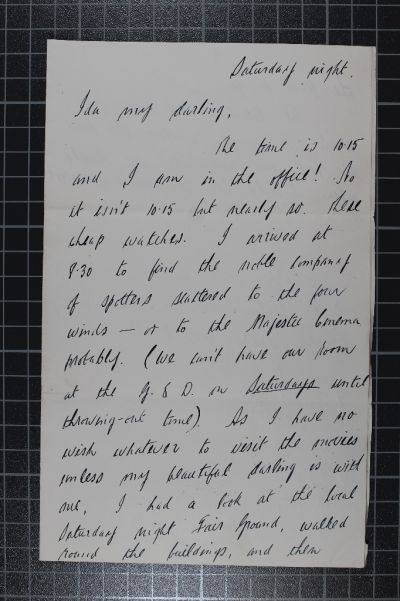 Saturday night.
Ida my darling,
The time is 10.15
and I am in the office! No
it isn't 10.15 but nearly so. These
cheap watches. I arrived at
8.30 to find the noble company
of spotters scattered to the four
winds — or to the Majestic Cinema
probably. (We can't have our room
at the G. & D. on Saturdays until
throwing-out time). As I have no
wish whatever to visit the movies
unless my beautiful darling is with
me, I had a look at the local
Saturday night Fair Ground, walked
round the buildings, and then